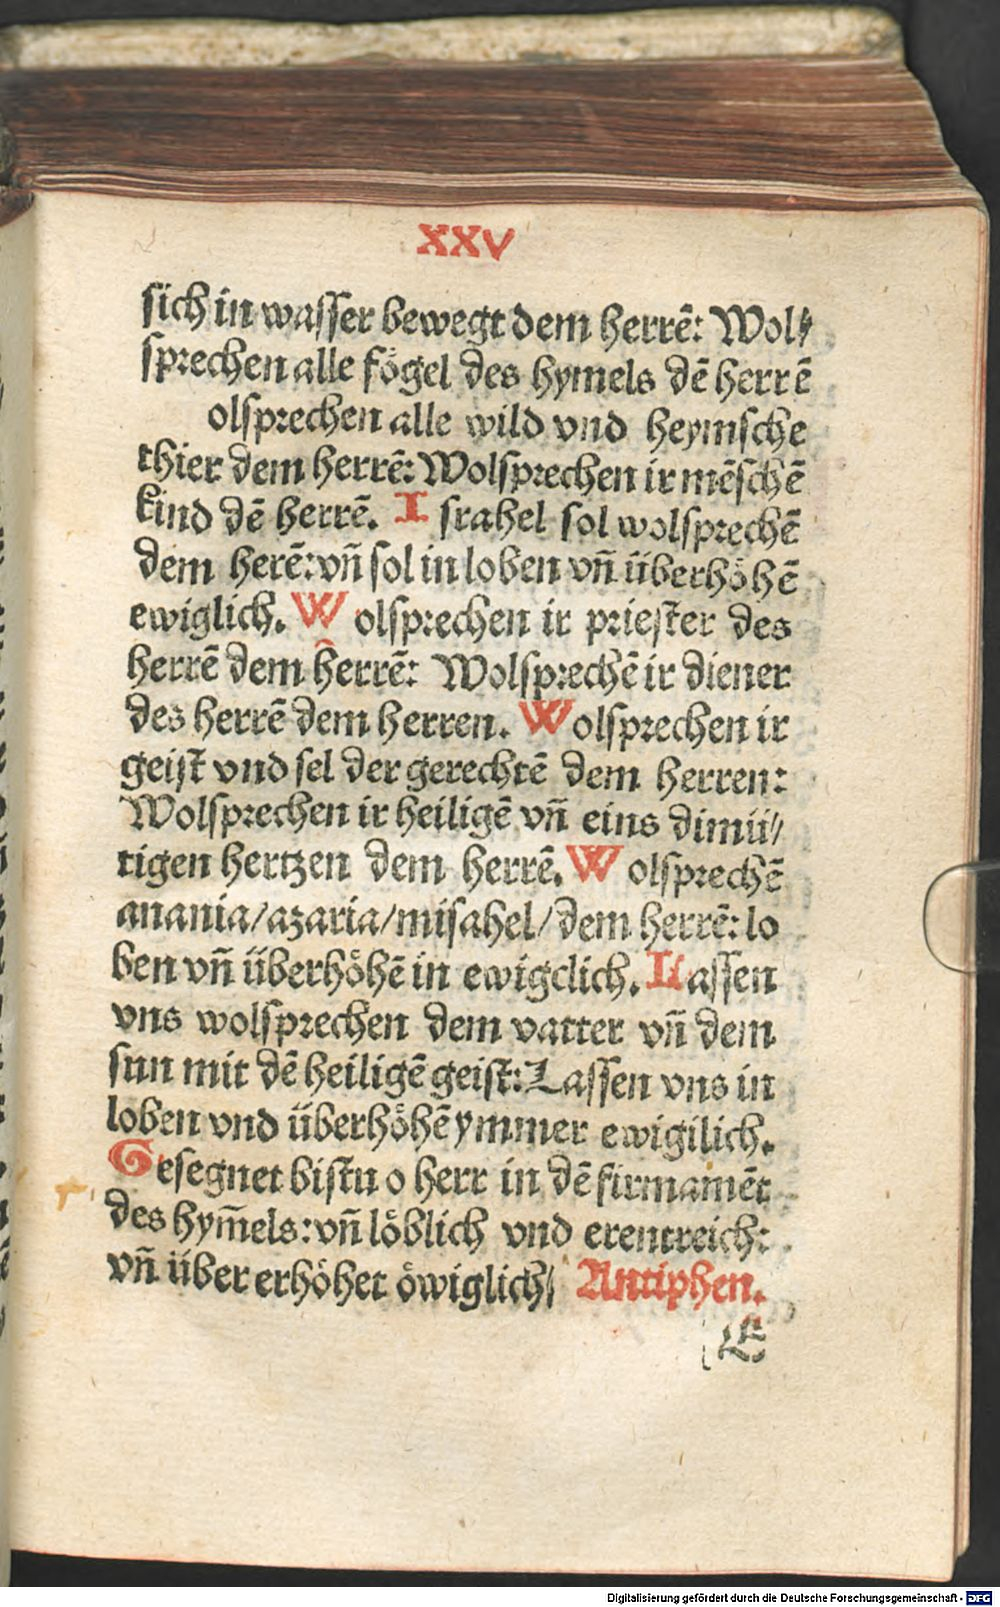 XXV
sich in wasser bewegt dem herrē: Wol⸗
sprechen alle fögel des hymels dē herrē
olsprechen alle wild vnd heymsche
thier dem herrē: Wolsprechen ir mēschē
kind dē herrē. Israhel sol wolsprechē
dem herē: vn̄ sol in loben vn̄ überhöhē
ewiglich. Wolsprechen ir priester des
herrē dem herrē: Wolsprechē ir diener
des herrē dem herren. Wolsprechen ir
geist vnd sel der gerechtē dem herren:
Wolsprechen ir heiligē vn̄ eins dimü⸗
tigen hertzen dem herrē. Wolsprechē
anania/azaria/misahel/dem herrē: lo
ben vn̄ überhöhē in ewigclich. Lassen
vns wolsprechen dem vatter vn̄ dem
sun mit dē heiligē geist: Lassen vns in
loben vnd überhöhē ymmer ewigilich.
Gesegnet bistu o herr in dē firmamēt
des hym̄els: vn̄ löblich vnd erentreich:
vn̄ über erhöhet öwiglich/ Antiphen.
Digitalisierung gefördert durch die Deutsche Forschungsgemeinschaft - DFG